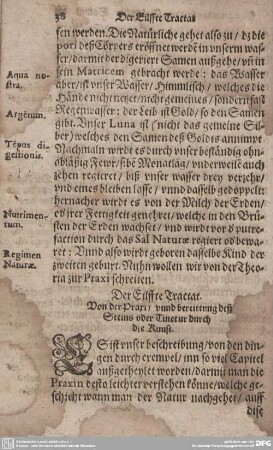 38 Der Eilffte Tractat
sen werden. Die Natürliche gehet also zu / dz die
pori deß Cörpers eröffnet werdē in vnserm was-
ser / darmit der digeriert Samen außgehe / vñ in
sein Matricem gebracht werde : das Wasser
aber / ist vnser Wasser / Himmlisch / welches die
Hände nicht netzet / nicht gemeines / sondern fast
Regenwasser : der Leib ist Gold / so den Samen
gibt. Vnser Luna ist (nicht das gemeine Sil-
ber) welches den Samen deß Goldes annimpt.
Nachmaln wirdt es durch vnser beständig oh-
abläßig Fewr / sibē Monatläg / vnderweiln auch
zehen regieret / biß vnser wasser drey verzehr /
vnd eines bleiben lasse / vnnd dasselb gedoppelt:
hernacher wirdt es von der Milch der Erden /
oder ihrer Fettigkeit genehret / welche in den Brü-
sten der Erden wachset / vnd wirdt vor d' putre-
faction durch das Sal Naturæ regiert oď bewa-
ret : Vnnd also wirdt geboren dasselbe Kind der
zweiten geburt. Nuhn wollen wir von der Theo-
ria zur Praxi schreiten.
Aqua no-
stra.
Argētum.
Tēpus di-
gestionis.
Nutrimen-
tum.
Regimen
Naturæ.
Der Eilffte Tractat.
Von der Praxi / vnnd bereittung deß
Steins oder Tinctur durch
die Kunst.
ES ist vnser beschreibung / von den din-
gen durch exempel / inn so viel Capitel
außgetheylet worden / darmit man die
Praxin desto leichter verstehen könne / welche ge-
schicht wann man der Natur nachgehet / auff
dise